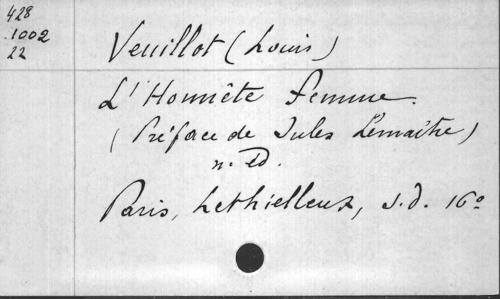 428
.1002
22
Veuillot (Louis)
L'Honnête femme.
(Préface de Jules Lemaître)
n. Ed.
Paris, Lethielleux, s.d. 16º